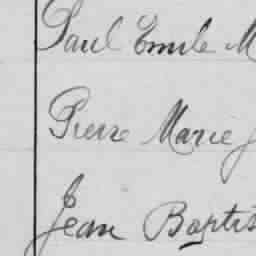 Paul Emile M
Pierre Marie J
Jean Baptis